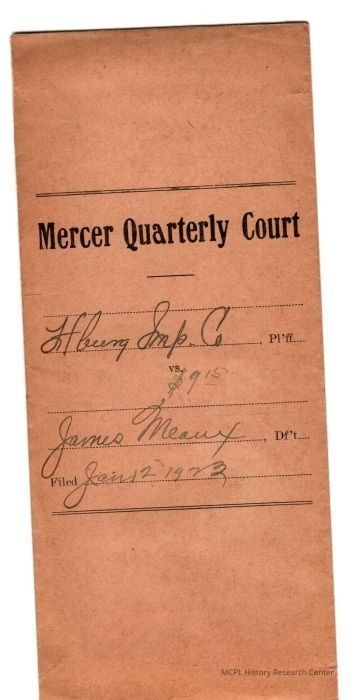 Mercer Quarterly Court
H'burg Imp. Co, Pl'ff....
vs.
$9 15
James Meaux, Df't....
Filed Jan 12 1923
MCPL History Research Center